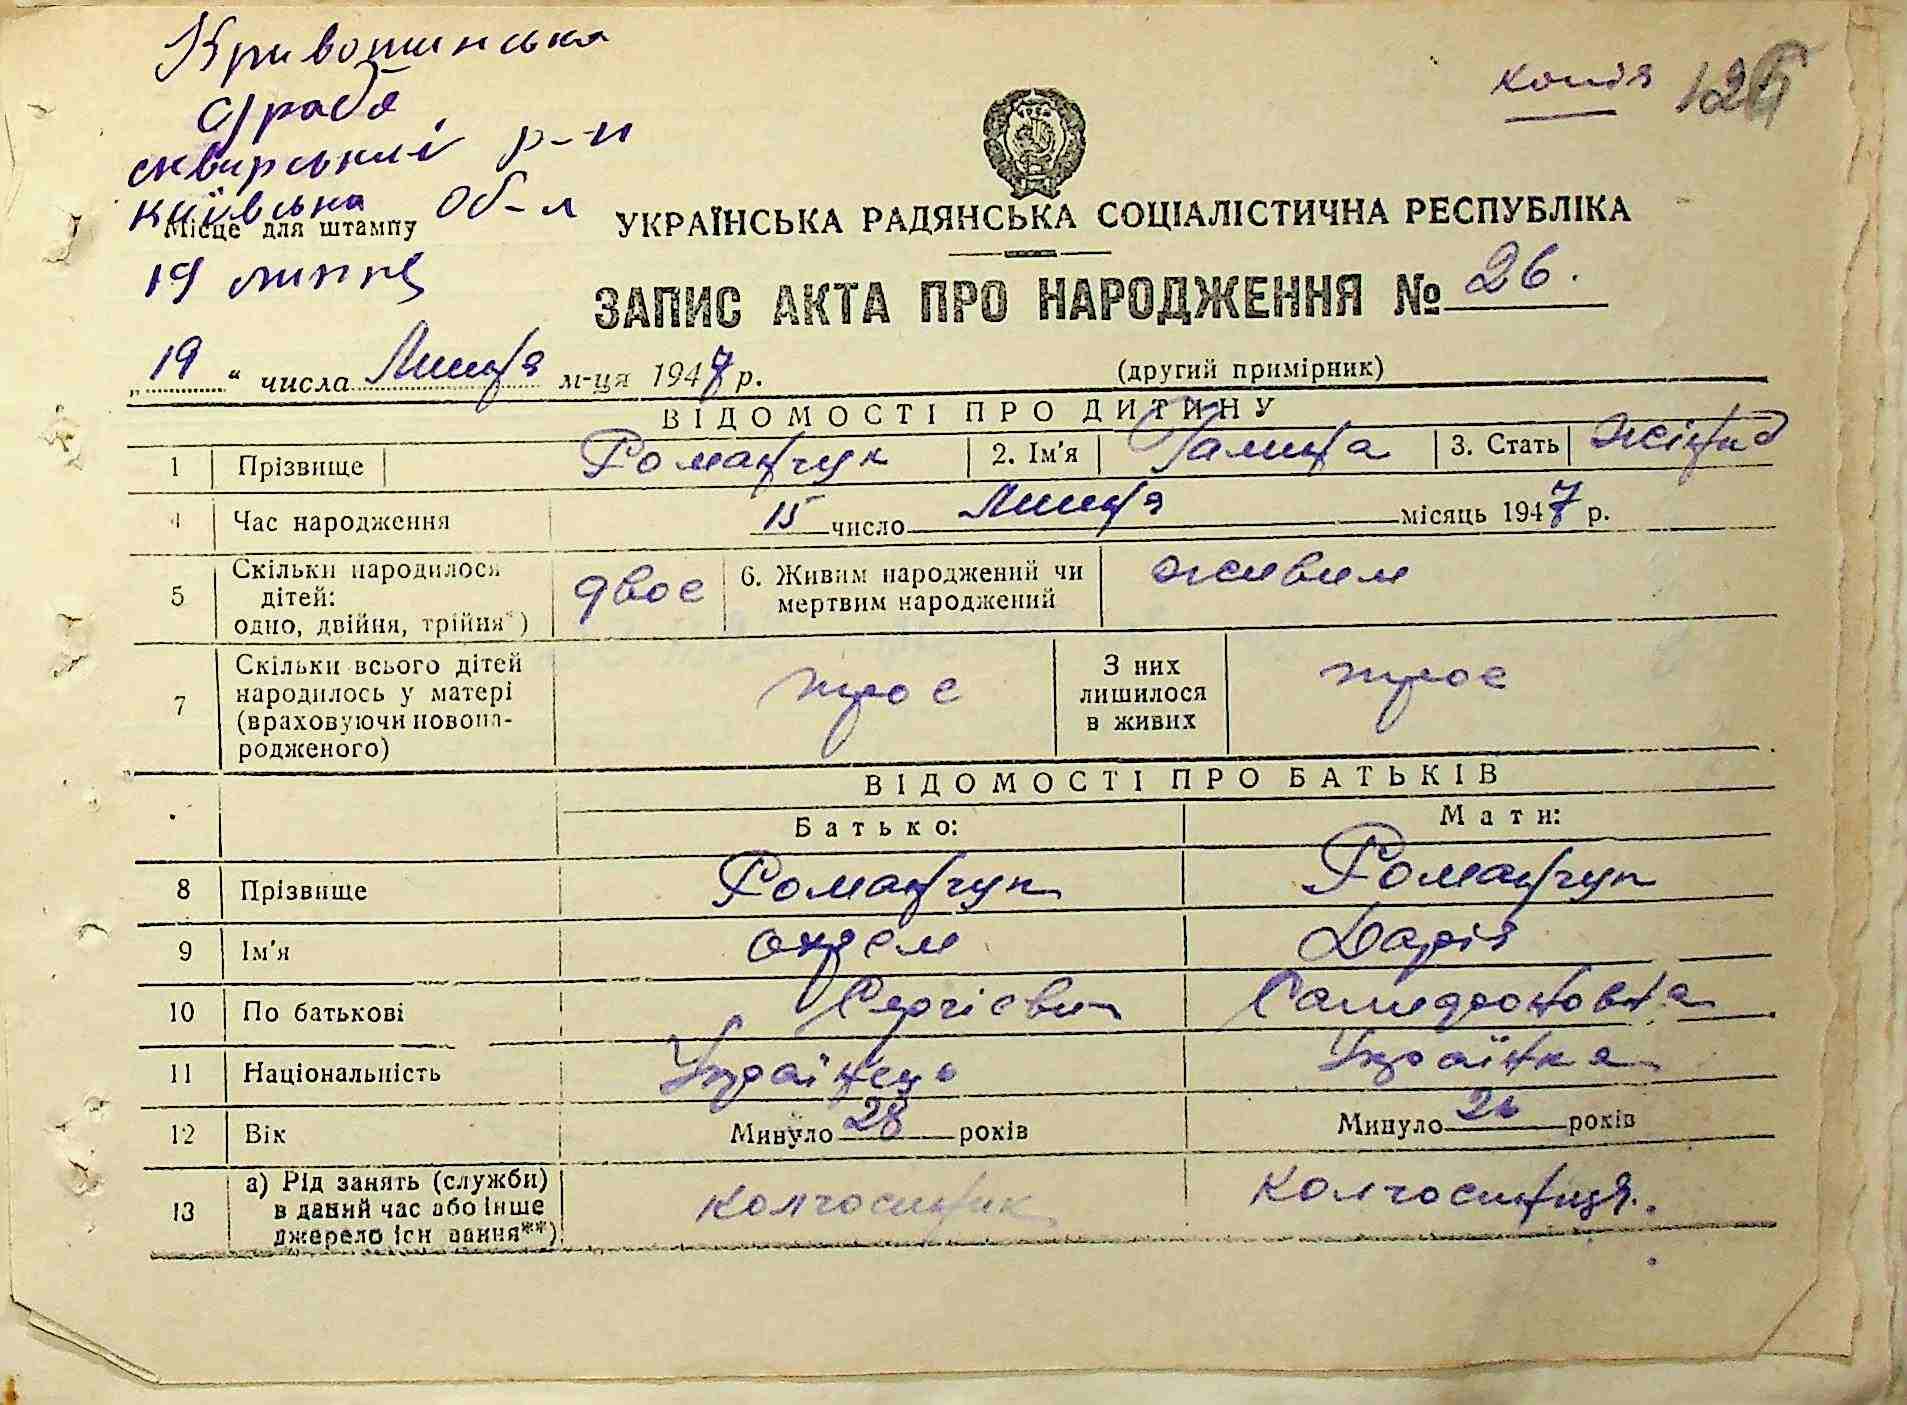 Кривошинська
с/рада
сквирський р-н
київська об-л
Місце для штампу
19 липня
копія
УКРАЇНСЬКА РАДЯНСЬКА СОЦІАЛІСТИЧНА РЕСПУБЛІКА
ЗАПИС АКТА ПРО НАРОДЖЕННЯ № 26.
„19“ числа Липня м-ця 1947 р.
(другий примірник)
ВІДОМОСТІ ПРО ДИТИНУ
1 Прізвище Романчук 2. Ім'я Галина 3. Стать
4 Час народження 15 число Липня місяць 1947 р.
5 Скільки народилося дітей: одно, двійня, трійня*) двоє 6. Живим народжений чи мертвим народжений живим
7 Скільки всього дітей народилось у матері (враховуючи новона-родженого) троє З них лишилося в живих троє
ВІДОМОСТІ ПРО БАТЬКІВ
Батько: Мати:
8 Прізвище Романчук Романчук
9 Ім'я Дарія
10 По батькові Сергієвич
11 Національність Українець Українка
12 Вік Минуло 28 років Минуло 26 років
13 а) Рід занять (служби) в даний час або інше джерело існ вання**) колгоспник колгоспниця.